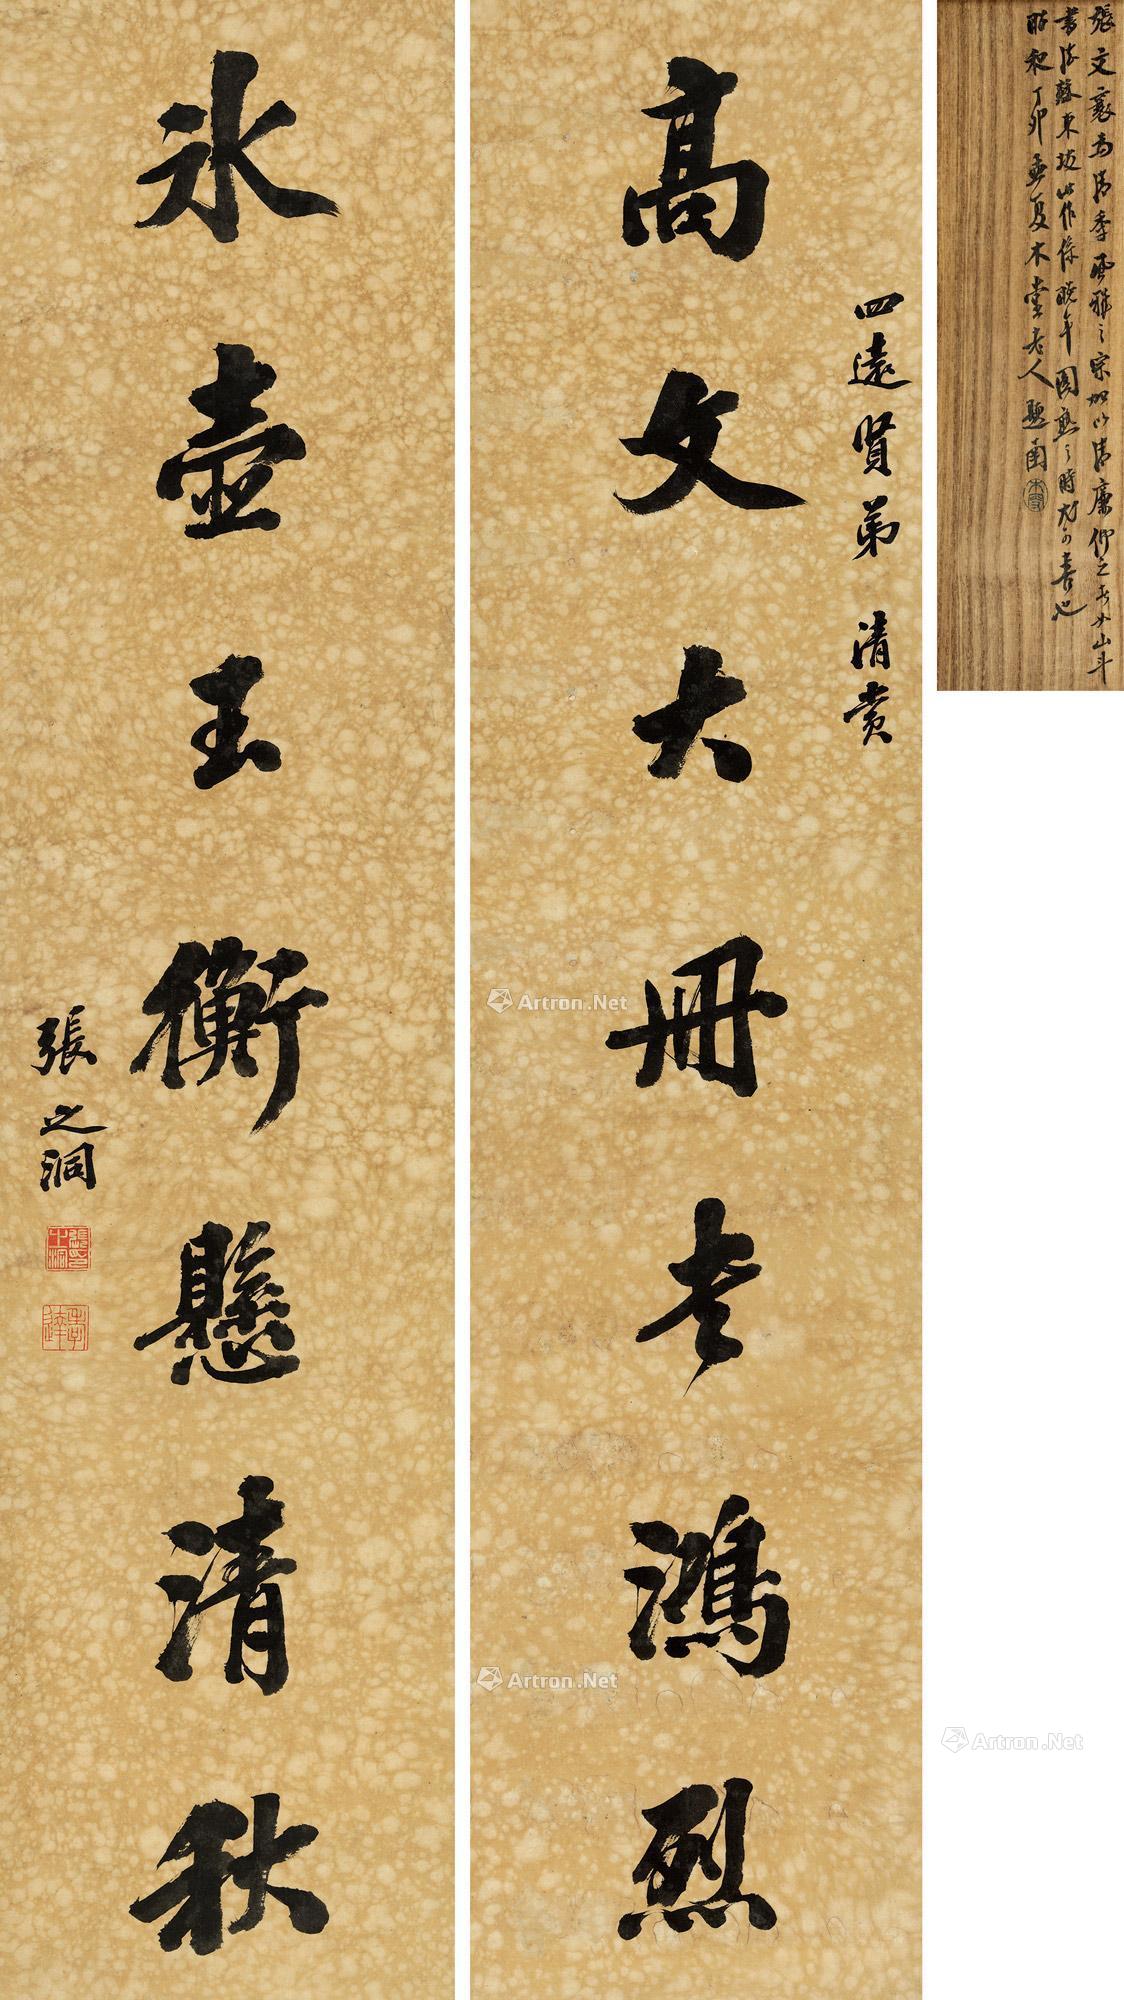 張文襄為清季風雅之宗加以清廉仰之者如山斗
書法蘇東坡此作係晚年圓熟之時尤可喜也
昭和丁卯孟夏木堂老人題函
四遠賢弟 清賞
高文大冊考鴻烈
冰壺玉衡懸清秋
張之洞
Artron.Net
Artron.Net
Artron.Net